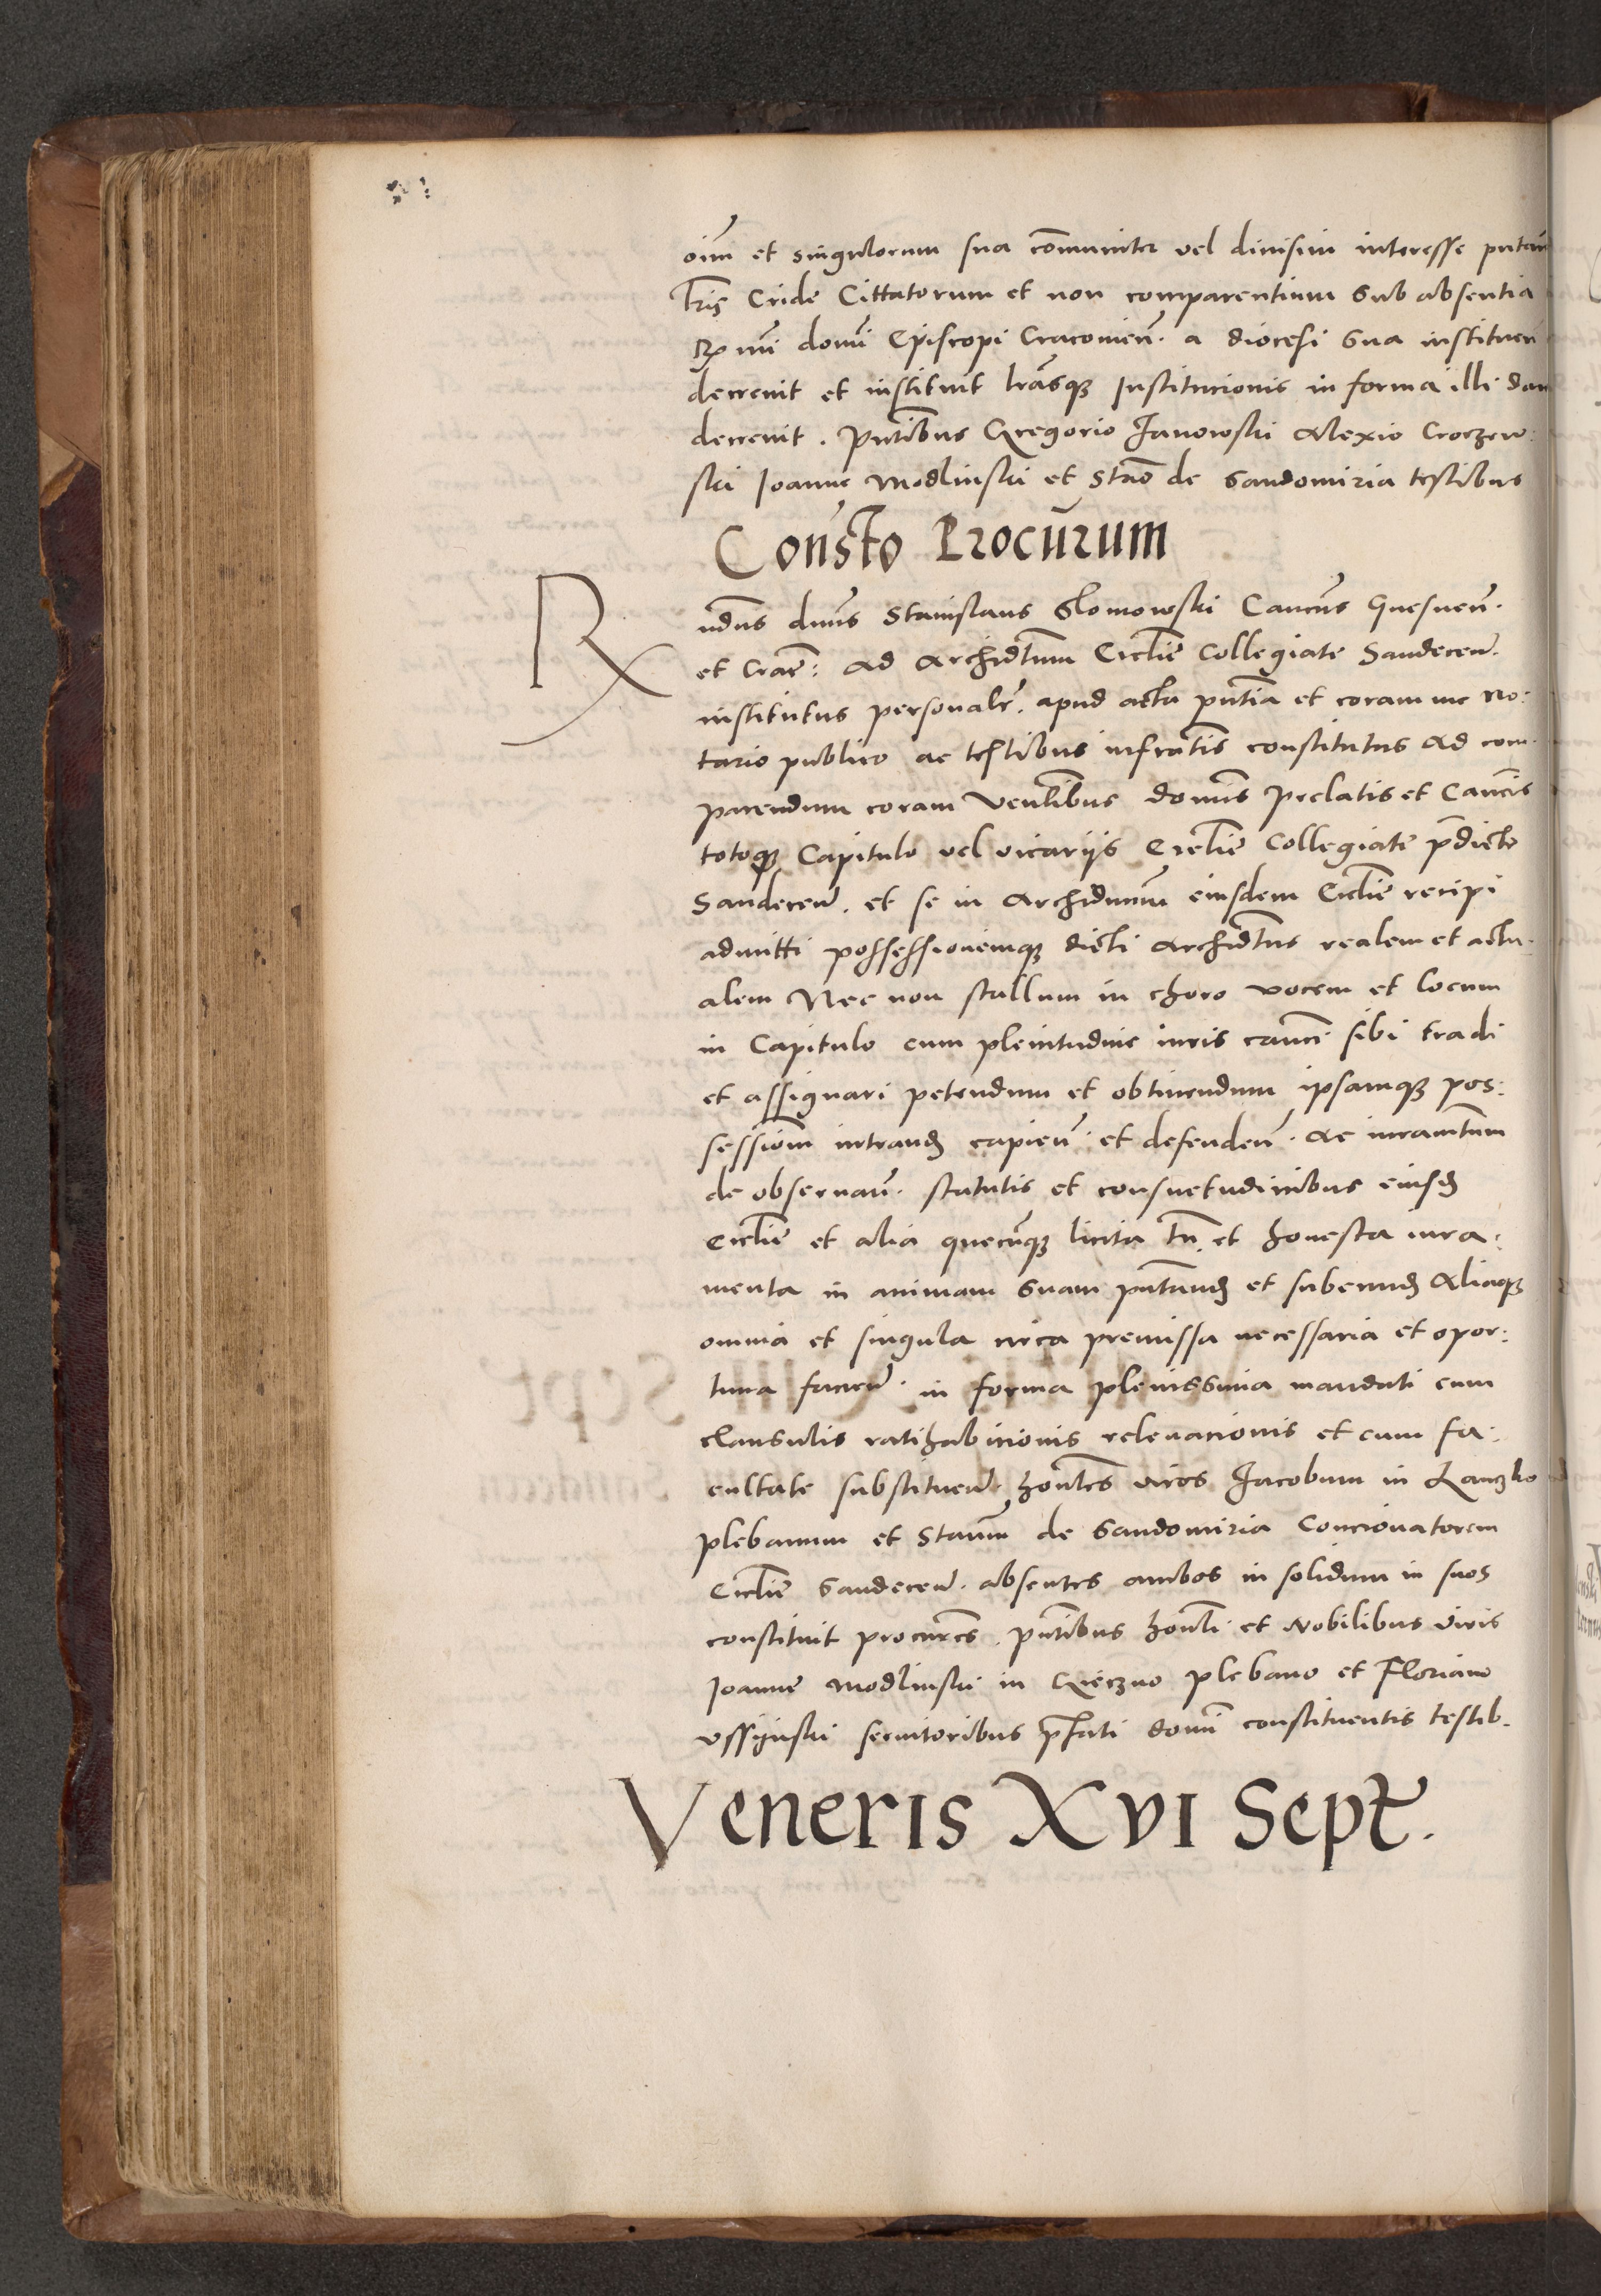 oim̄ et singulorum sua com̄uniter vel divisim interesse putan
Lr̄is Cride Cittatorum et non comparentium Sub absentia
Rx̄mi domi Episcopi Cracovien̄. a diocesi sua instituen
decrevit et instituit lrāsqȝ Institucionis in forma illi dan
decrevit. Pn̄tibus Gregorio Janowski Alexio Croczew:
ski Joanne Modlinski et Stāo de Sandomiria testibus
Consto Procurum
R
ndus dn̄us Stanislaus Slomowski Cancus Gnesnen̄.
et Crac̄: ad Archidtum Ecclie Collegiate Sandecen̄.
institutus personalr̄. apud acta pn̄tia et coram me no:
tario publico ac testibus infratis constitutus ad com
parendum coram Venlibus domis Prelatis et Cancis
totoqȝ Capitulo vel vicarijs Ecclie Collegiate p̄dicte
Sandecen̄. et se in Archidnum eiusdem Ecclie recipi
admitti possessionemqȝ dicti Archidtus realem et actu
alem Nec non stallum in choro vocem et locum
in Capitulo cum plenitudine iuris canci sibi tradi
et assignari petendum et obtinendum ipsamqȝ pos:
sessiom̄ intrand̄ capien̄. et defenden̄. ac iuramtum
de observan̄. statutis et consuetudinibus eiusd̄
Ecclie et alia quecūqȝ licita tn̄. et honesta iura:
menta in animam suam pn̄tand̄ et subeund̄ Aliaqȝ
omnia et singula circa premissa necessaria et opor:
tuna facien̄. in forma plenissima mandati cum
clausulis ratihabicionis relevacionis et cum fa:
cultate substituen̄. honles viros Jacobum in Lanczko
plebanum et Staum̄ de Sandomiria Concionatorem
Ecclie Sandecen̄. absentes ambos in solidum in suos
constituit procures. pn̄tibus honli et Nobilibus viris
Joanne Modlinski in Gieczno plebano et Floriano
Vssijnski servitoribus p̄fati domi constituentis testib.
Veneris XVI Sept.